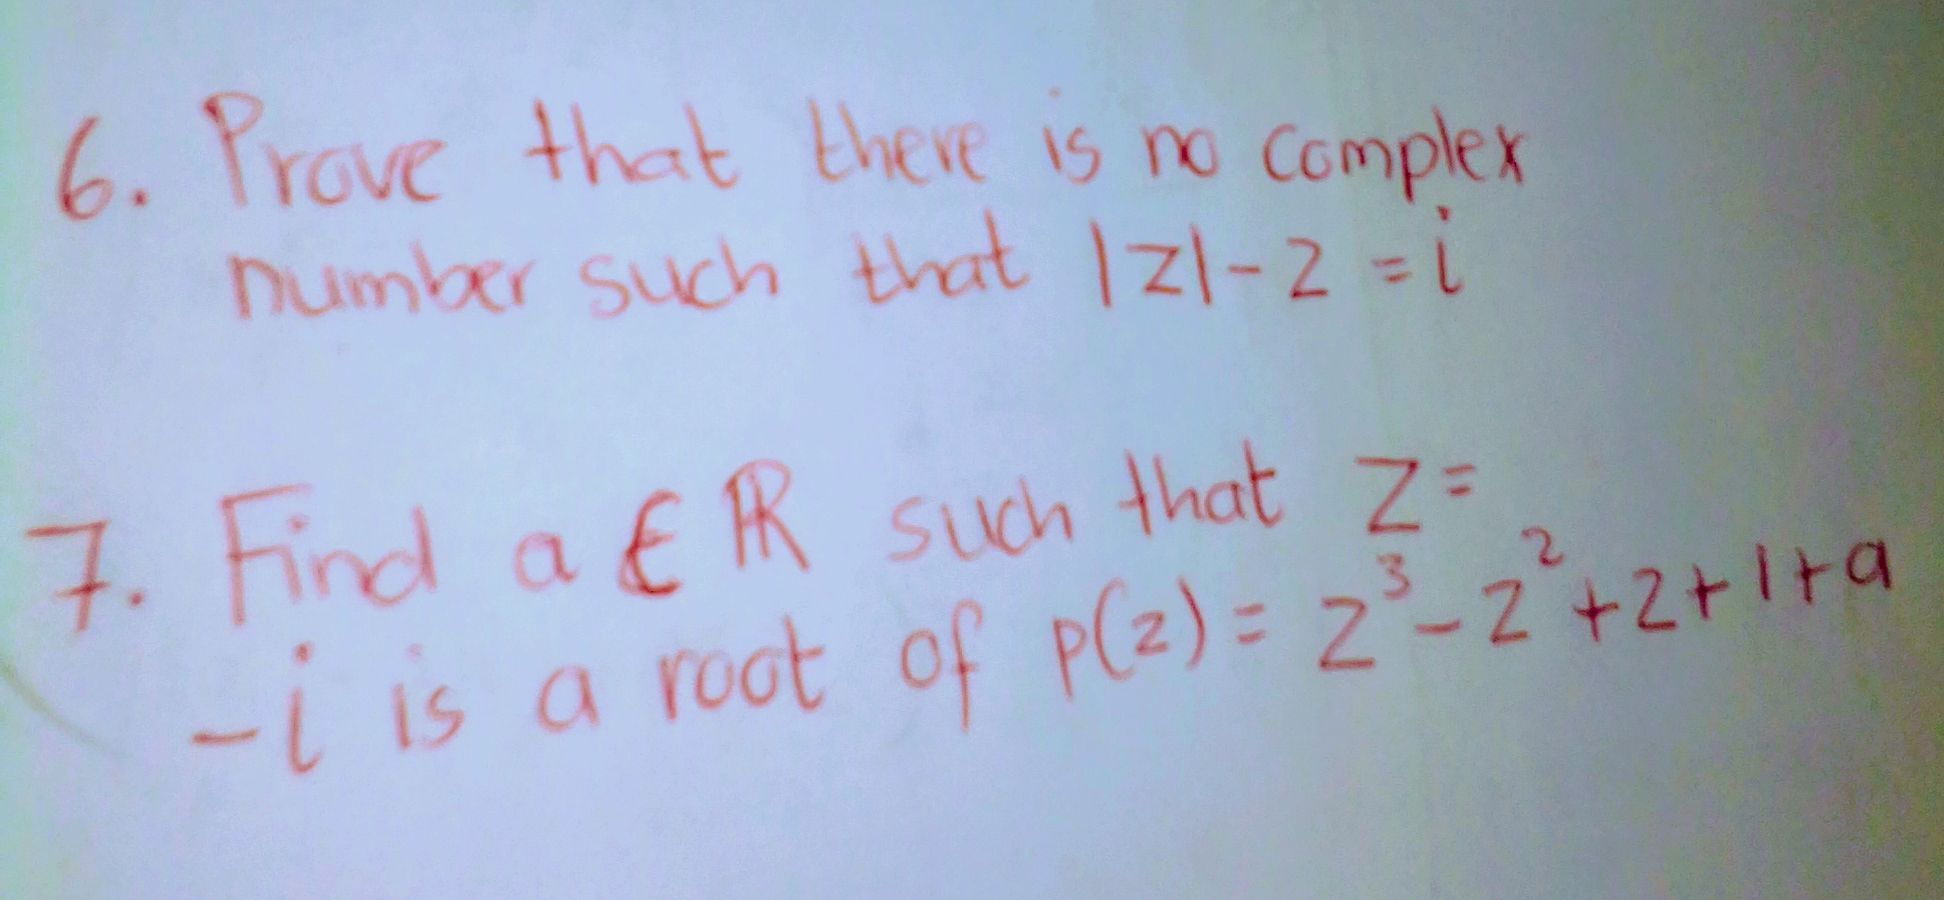 6. Prove that there is no complex
number such that |z|-2 = i
7. Find a ∈ ℝ such that z =
-i is a root of p(z) = z³ - z² + z + 1 + a